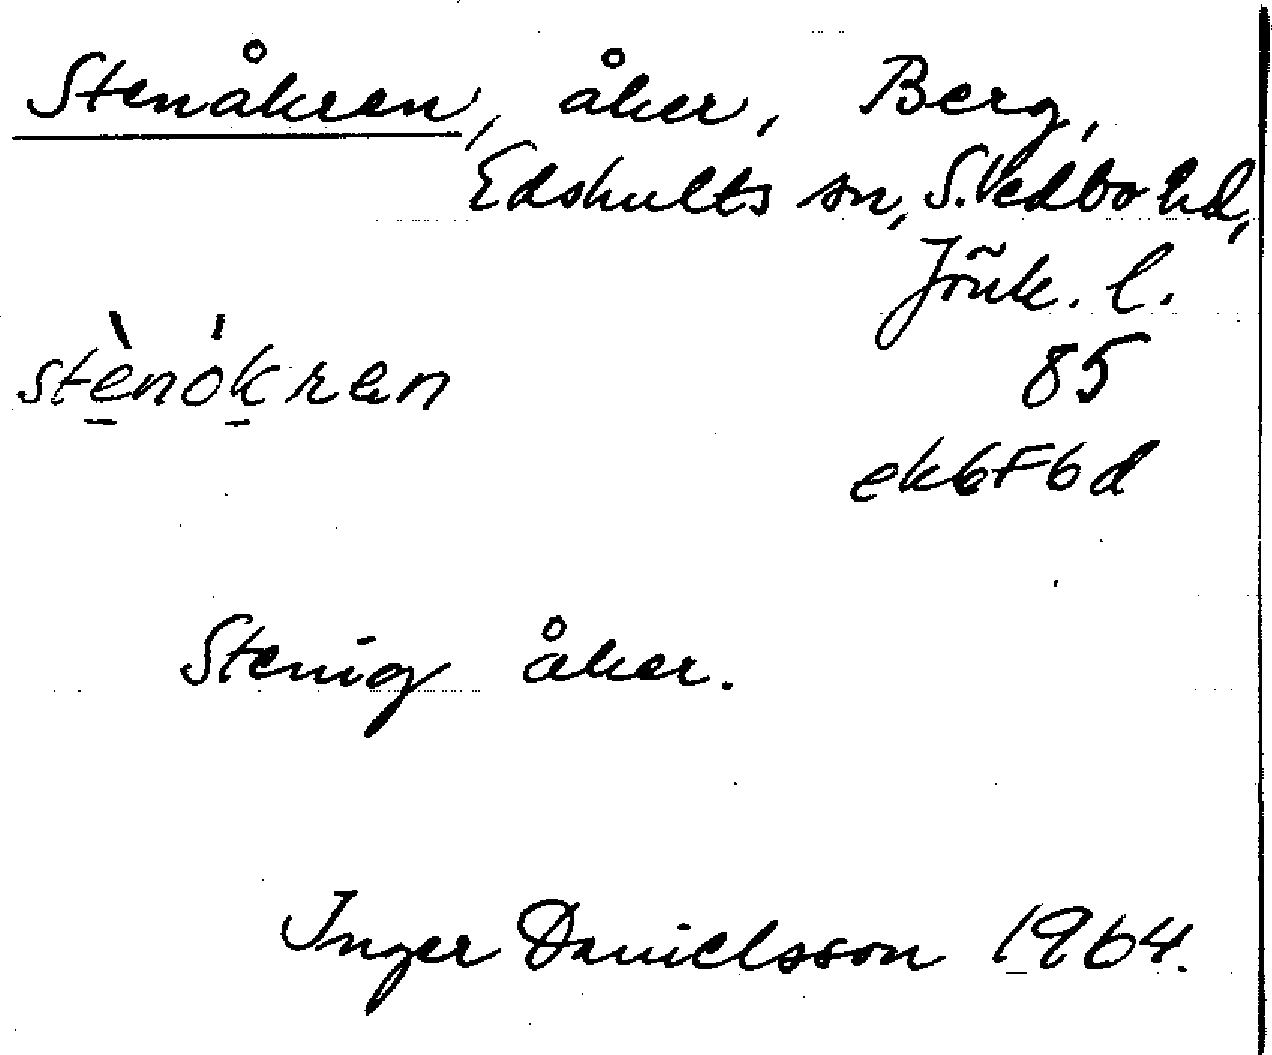 Stenåkren, åker, Berg,
Edshults sn, S. Vedbo hd,
Jönk. l.
stè̠nók̠ren
85
ek6F6d
Stenig åker.
Inger Danielsson 1964.